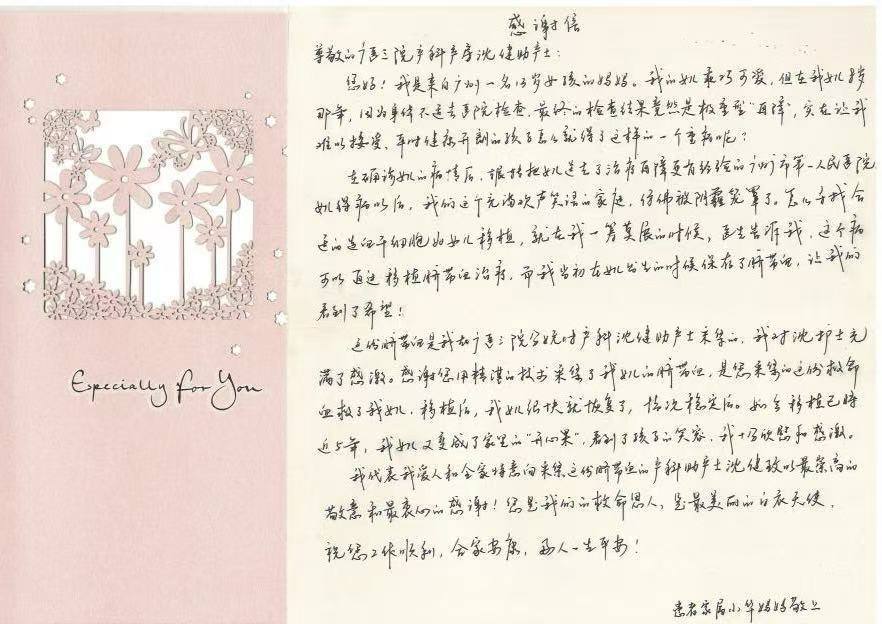 Especially for You
感谢信
尊敬的广医三院产科产房沈健助产士:
您好!我是来自广州一名13岁女孩的妈妈。我的女儿乖巧可爱,但在我女儿8岁
那年,因为身体不适去医院检查,最终的检查结果竟然是极重型"再障",实在让我
难以接受,平时健康开朗的孩子怎么就得了这样的一个重病呢?
在确诊女儿的病情后,辗转把女儿送去了治疗再障更有经验的广州市第一人民医院
女儿得病以后,我们这个充满欢声笑语的家庭,仿佛被阴霾笼罩了。怎么寻找合
适的造血干细胞为女儿移植,就在我一筹莫展的时候,医生告诉我,这个病
可以通过移植脐带血治疗,而我当初在女儿出生的时候保存了脐带血,让我们
看到了希望!
这份脐带血是我在广医三院分娩时产科沈健助产士采集的,我对沈护士充
满了感激。感谢您用精湛的技术采集了我女儿的脐带血,是您采集的这份救命
血救了我女儿,移植后,我女儿很快就恢复了,情况稳定后。如今移植已将
近5年,我女儿又变成了家里的"开心果",看到了孩子的笑容,我十分欣慰和感激。
我代表我爱人和全家特意向采集这份脐带血的产科助产士沈健致以最崇高的
敬意和最衷心的感谢!您是我们的救命恩人,是最美丽的白衣天使,
祝您工作顺利,合家安康,好人一生平安!
患者家属小华妈妈敬上